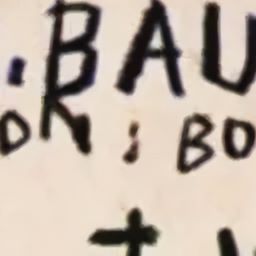 .BAU
OR : BO
+